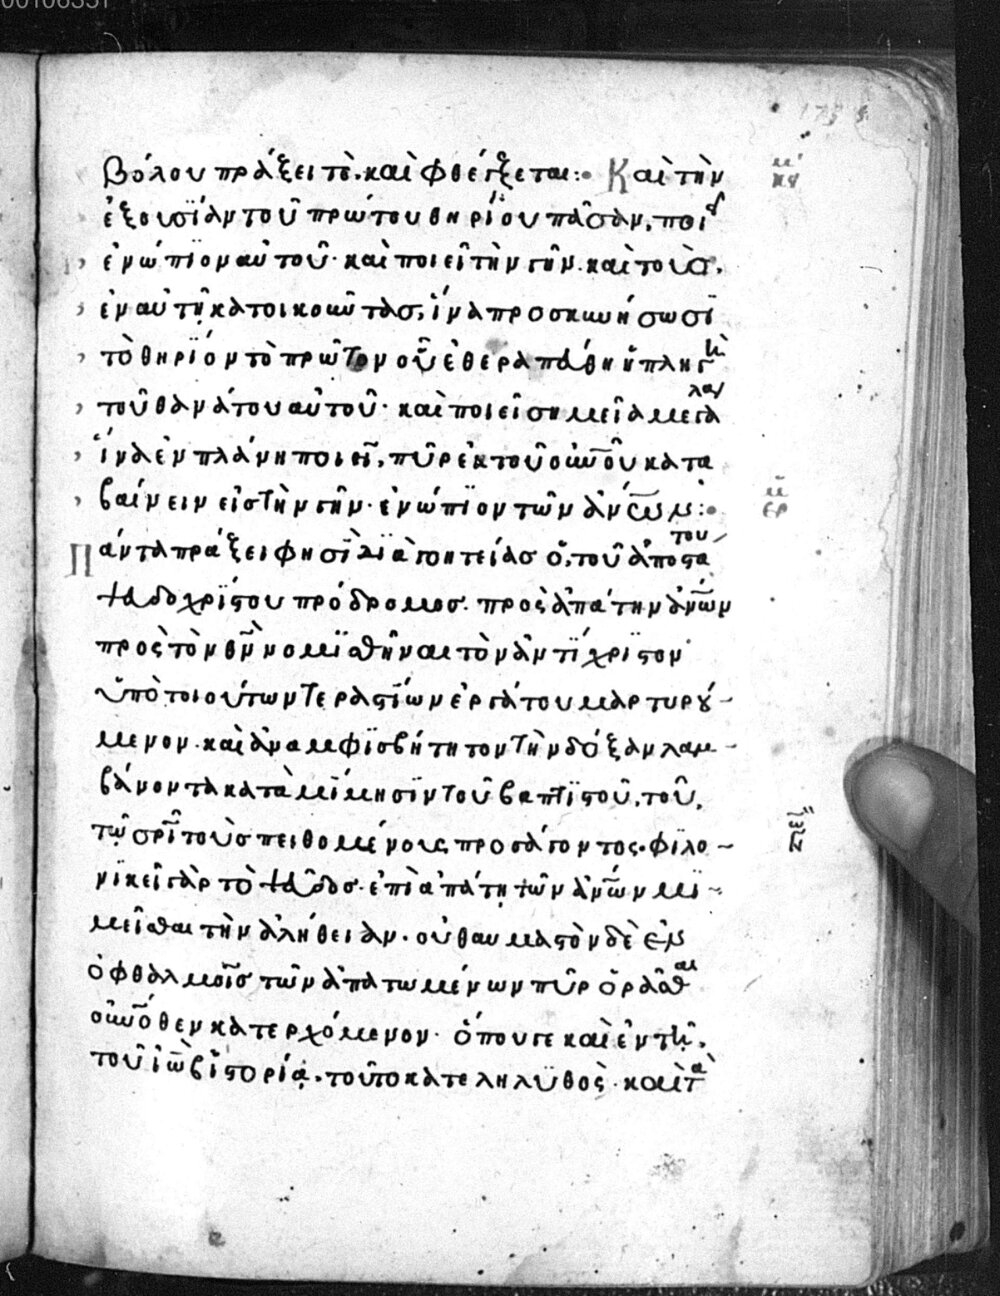 βόλου πράξει τὲ. καὶ φθέγξεται: Καὶ τὴν
ἐξουσίαν τοῦ πρώτου θηρίου πᾶσαν, ποιεῖ
ἐνώπϊον αὐτοῦ· καὶ ποιεῖ τὴν γῆν. καὶ τοὺσ.
ἐν αὐτῇ κατοικοῦντασ, ἵνα προσκυνήσωσϊ
τὸ θηρϊὸν τὸ πρῶτον οὗ ἐθεραπεύθη ἡ πληγὴ
τοῦ θανάτου αὐτοῦ· καὶ ποιεῖ σημεῖα μεγάλα
ἵνα ἐν πλάνη ποιεῖ, πῦρ ἐκ τοῦ οὐνοῦ κατα
βαίνειν εἰσ τὴν γῆν· ἐνώπϊον τῶν ἀνων:
Πάντα πράξει φησὶ διὰ γοητείασ ὁ, τοῦ ἀποστάτου
ψευδοχρίστου πρόδρομοσ. πρὸς ἀπάτην ἀνων
πρὸς τὸ νομϊσθῆναι τὸν ἀντίχρϊστον
ὑπὸ τοιούτων τεραστίων ἐργάτου μαρτυρού-
μενον. καὶ ἀναμφϊσβήτητον τὴν δόξαν λαμ-
βάνοντα κατὰ μίμησϊν τοῦ βαπτϊστοῦ, τοῦ,
τῷ σρϊ τοὺσ πειθομένους προσάγοντος. φϊλο-
νϊκεῖ γὰρ τὸ ψεῦδοσ. ἐπὶ ἀπάτῃ τῶν ἀνων μϊ-
μεῖσθαι τὴν ἀλήθειαν. οὐ θαυμαστὸν δὲ ἐν
ὀφθαλμοῖσ τῶν ἀπατωμένων πῦρ ὁρᾶσθαι
οὐνόθεν κατερχόμενον· ὅπουγε καὶ ἐν τῇ.
τοῦ ἰὼβ ἱστορίᾳ. τοῦτο κατεληλϋθὸς. καὶ τὰ